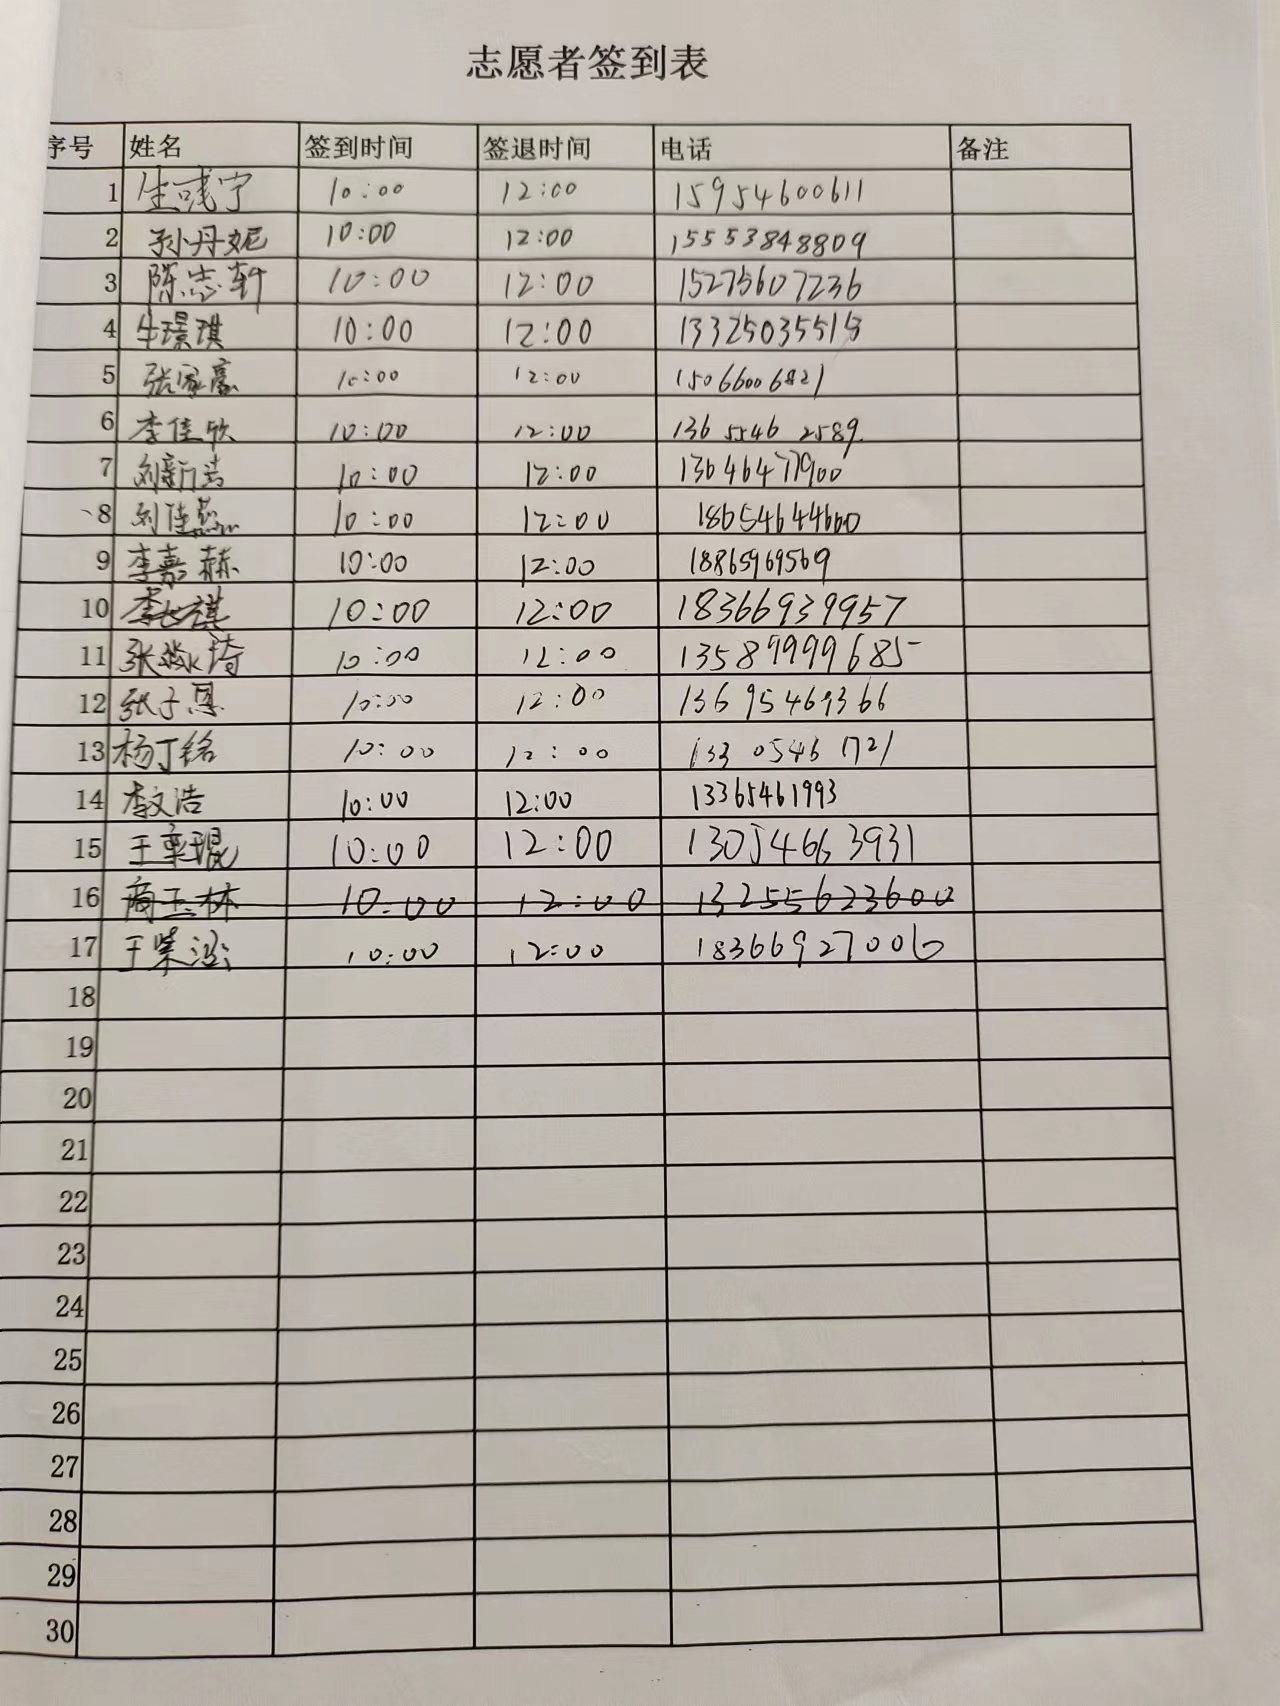 志愿者签到表
序号 姓名 签到时间 签退时间 电话 备注
1 生彧宁 10:00 12:00 15954600611
2 孙丹妮 10:00 12:00 15553848809
3 陈志轩 10:00 12:00 15275607236
4 牛璟琪 10:00 12:00
5 张家豪 10:00 12:00 15066006821
6 李佳欣 10:00 12:00 136 5546 2589
7 刘新洁 10:00 12:00 13646477900
8 刘佳 10:00 12:00 18654644660
9 李嘉赫 10:00 12:00 18865969569
10 李 祺 10:00 12:00 18366939957
11 张淼琦 10:00 12:00 13589999685
12 张子恩 10:00 12:00 13695469366
13 杨丁铭 10:00 12:00 133 0546 1721
14 李文浩 10:00 12:00 13365461993
15 王奕琨 10:00 12:00 13054663931
16 商玉林 10:00 12:00 13255623600
17 王紫涵 10:00 12:00 18366927006
18
19
20
21
22
23
24
25
26
27
28
29
30